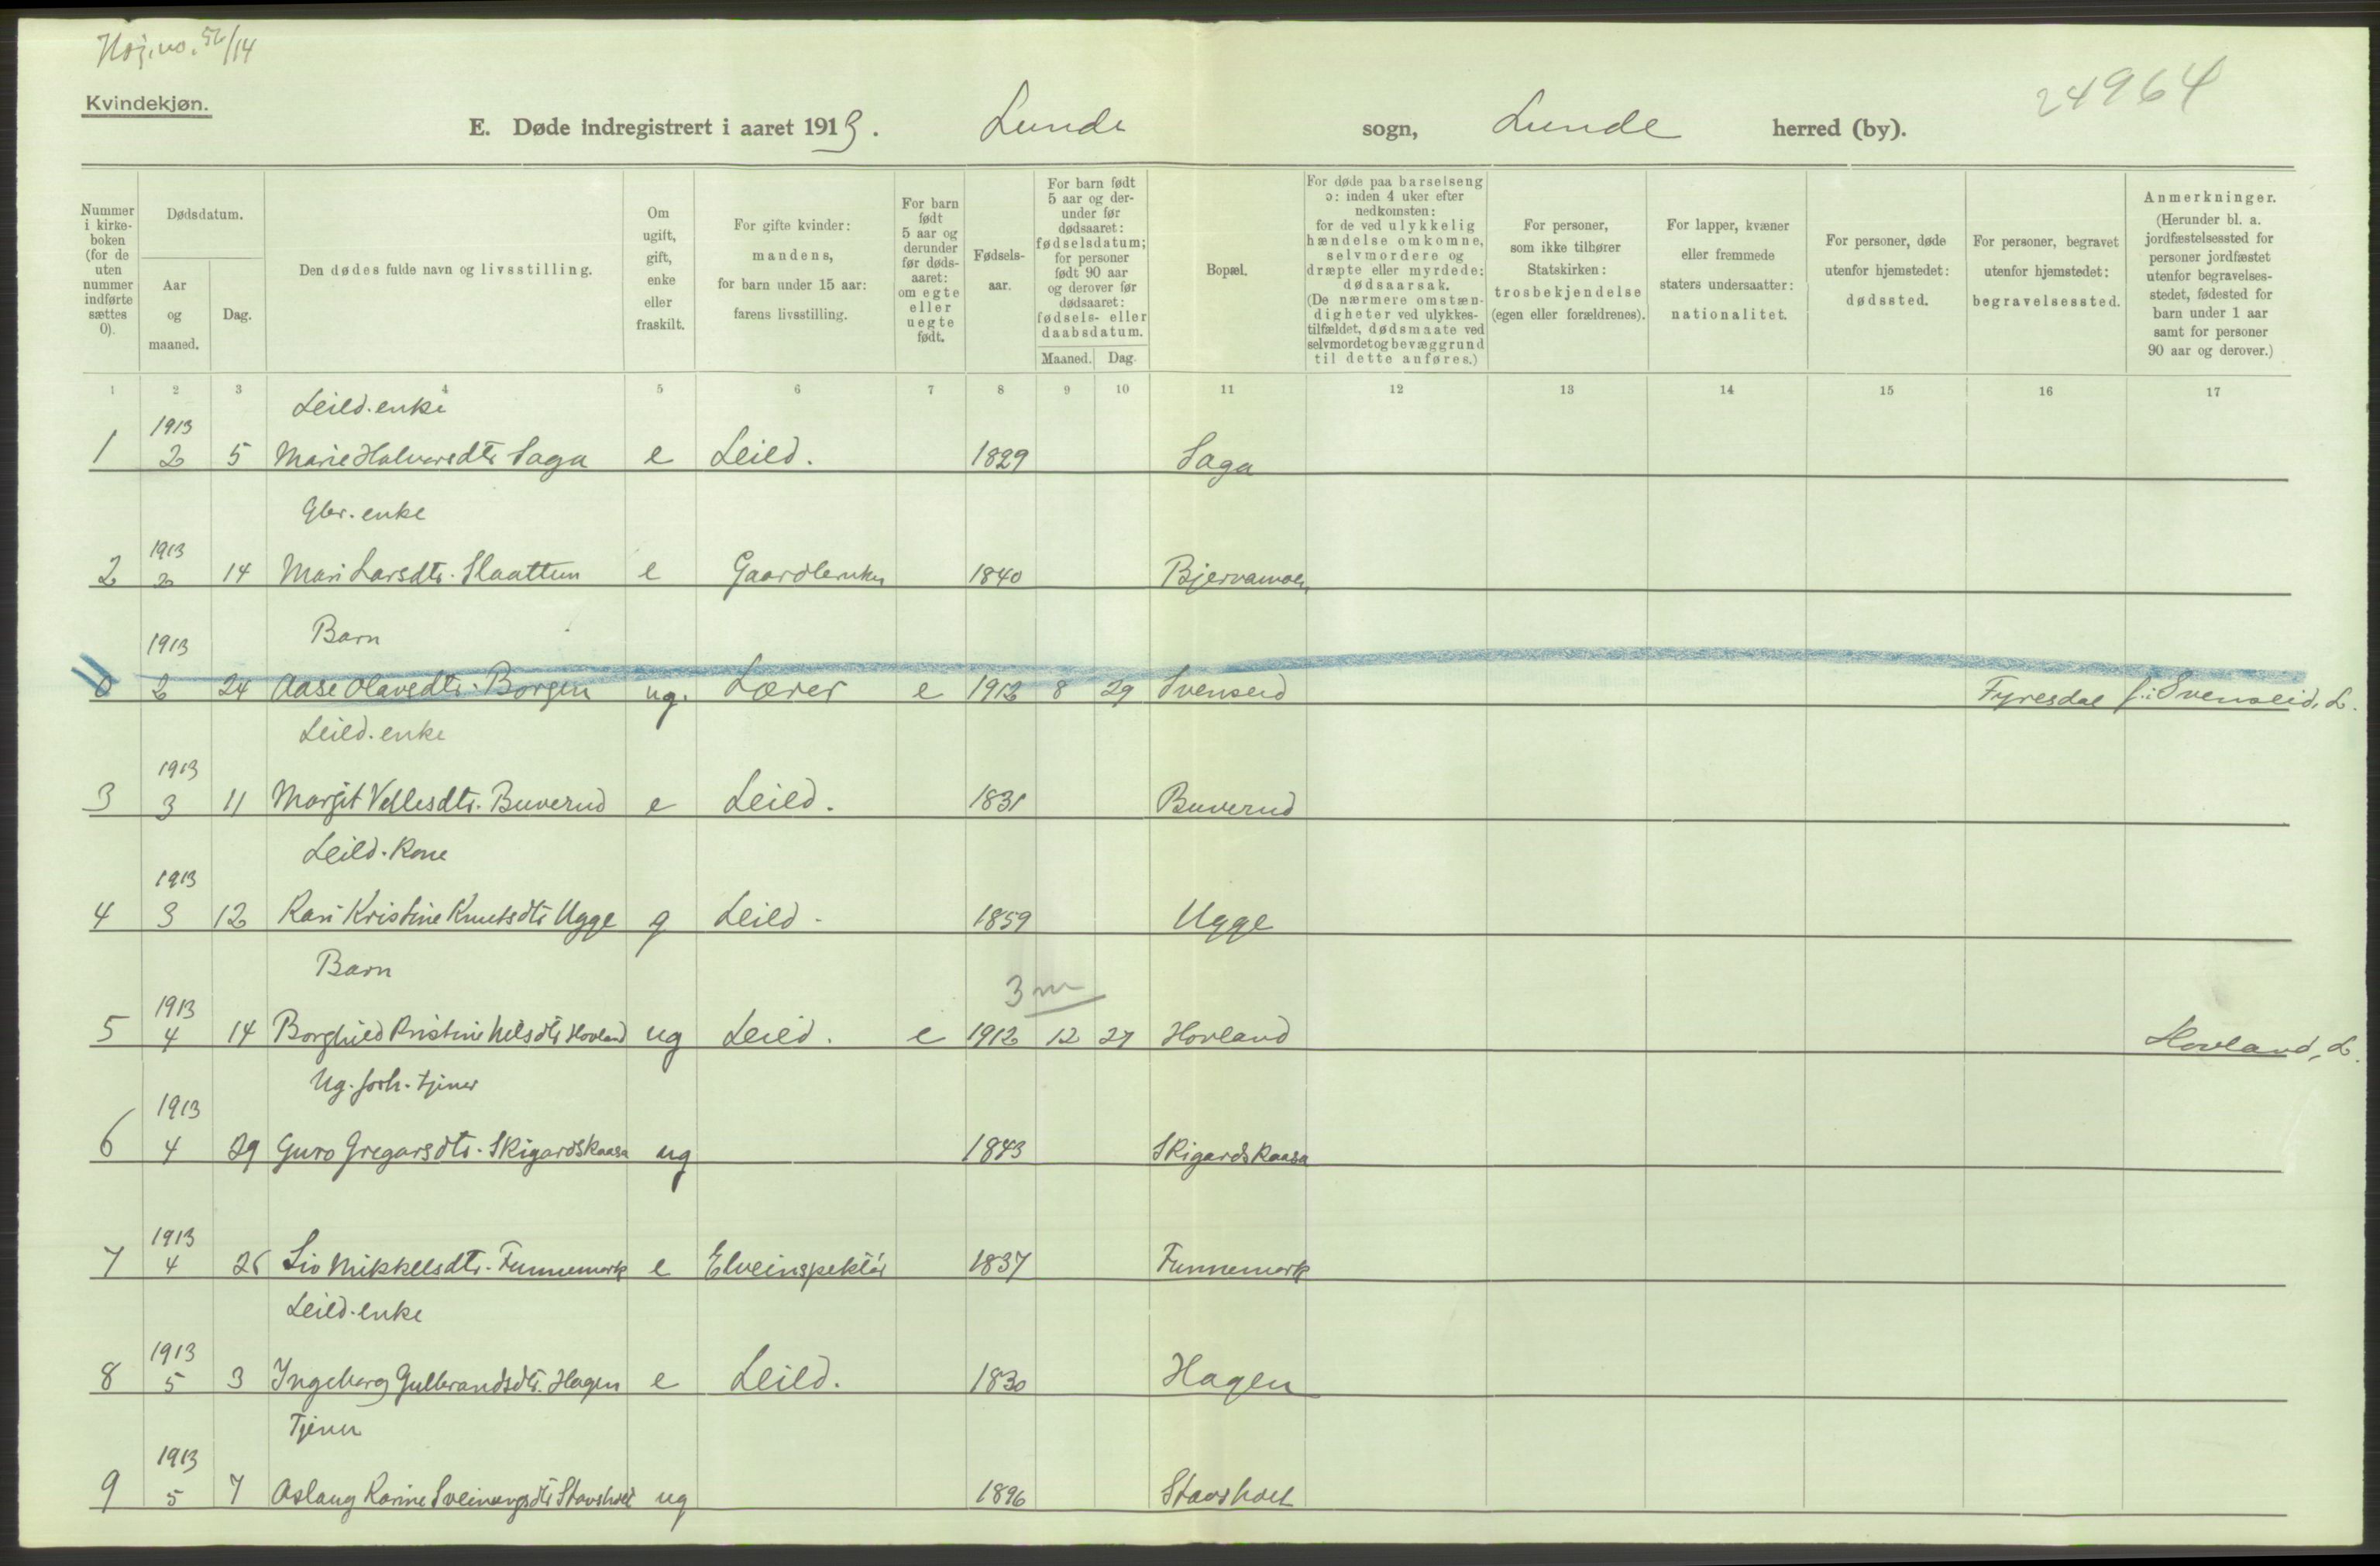 Kvindekjøn.
24964
E. Døde indregistrert i aaret 1913. Lunde sogn, Lunde herred (by).
Nummer i kirke-boken (for de uten nummer indførte sættes 0).
Dødsdatum.
Aar og maaned.
Dag.
Den dødes fulde navn og livsstilling.
Om ugift, gift, enke eller fraskilt.
For gifte kvinder: mandens, for barn under 15 aar: farens livsstilling.
For barn født 5 aar og derunder før døds-aaret: om egte eller uegte født.
Fødsels-aar.
For barn født 5 aar og der-under før dødsaaret: fødselsdatum; for personer født 90 aar og derover før dødsaaret: fødsels- eller daabsdatum.
Maaned. Dag.
Bopæl.
For døde paa barselseng ɔ: inden 4 uker efter nedkomsten: for de ved ulykkelig hændelse omkomne, selvmordere og dræpte eller myrdede: dødsaarsak. (De nærmere omstæn-digheter ved ulykkes-tilfældet, dødsmaate ved selvmordet og bevæggrund til dette anføres.)
For personer, som ikke tilhører Statskirken: trosbekjendelse (egen eller forældrenes).
For lapper, kvæner eller fremmede staters undersaatter: nationalitet.
For personer, døde utenfor hjemstedet: dødssted.
For personer, begravet utenfor hjemstedet: begravelsessted.
Anmerkninger. (Herunder bl. a. jordfæstelsessted for personer jordfæstet utenfor begravelses-stedet, fødested for barn under 1 aar samt for personer 90 aar og derover.)
1 2 3 4 5 6 7 8 9 10 11 12 13 14 15 16 17
Leild. enke
1913
1 2 5 Marie Halvorsdtr Saga e Leild. 1829 Saga
Gbr. enke
1913
2 2 14 Mari Larsdtr. Slaattun e 1840
Barn
1913
0 2 24 Aase Olavsdtr. Borgen ug. Lærer e 1912 8 29 Svenseid Fyresdal f.i Svenseid, L.
Leild. enke
1913
3 3 11 Margit Vetlesdtr. Buverud e Leild. 1831 Buverud
Leild. Kone
1913
4 3 12 Kari Kristine Knutsdtr Ugge g Leild. 1859 Ugge
Barn
3 m
1913
5 4 14 Borghild Kristine Nilsdtr Hovland ug Leild. e 1912 12 27 Hovland Hovland, L.
Ug. forh. tjener
1913
6 4 29 Guro Gregarsdtr. Skigardskaasa ug 1843 Skigardskaasa
1913
7 4 26 Liv Mikkelsdtr. Funnemark e Elveinspektør 1837 Funnemark
Leild. enke
1913
8 5 3 Ingeborg Gulbrandsdtr. Hagen e Leild. 1830 Hagen
Tjener
1913
9 5 7 Aslaug Karine Sveinungsdtr Stavsholt ug 1896 Stavsholt